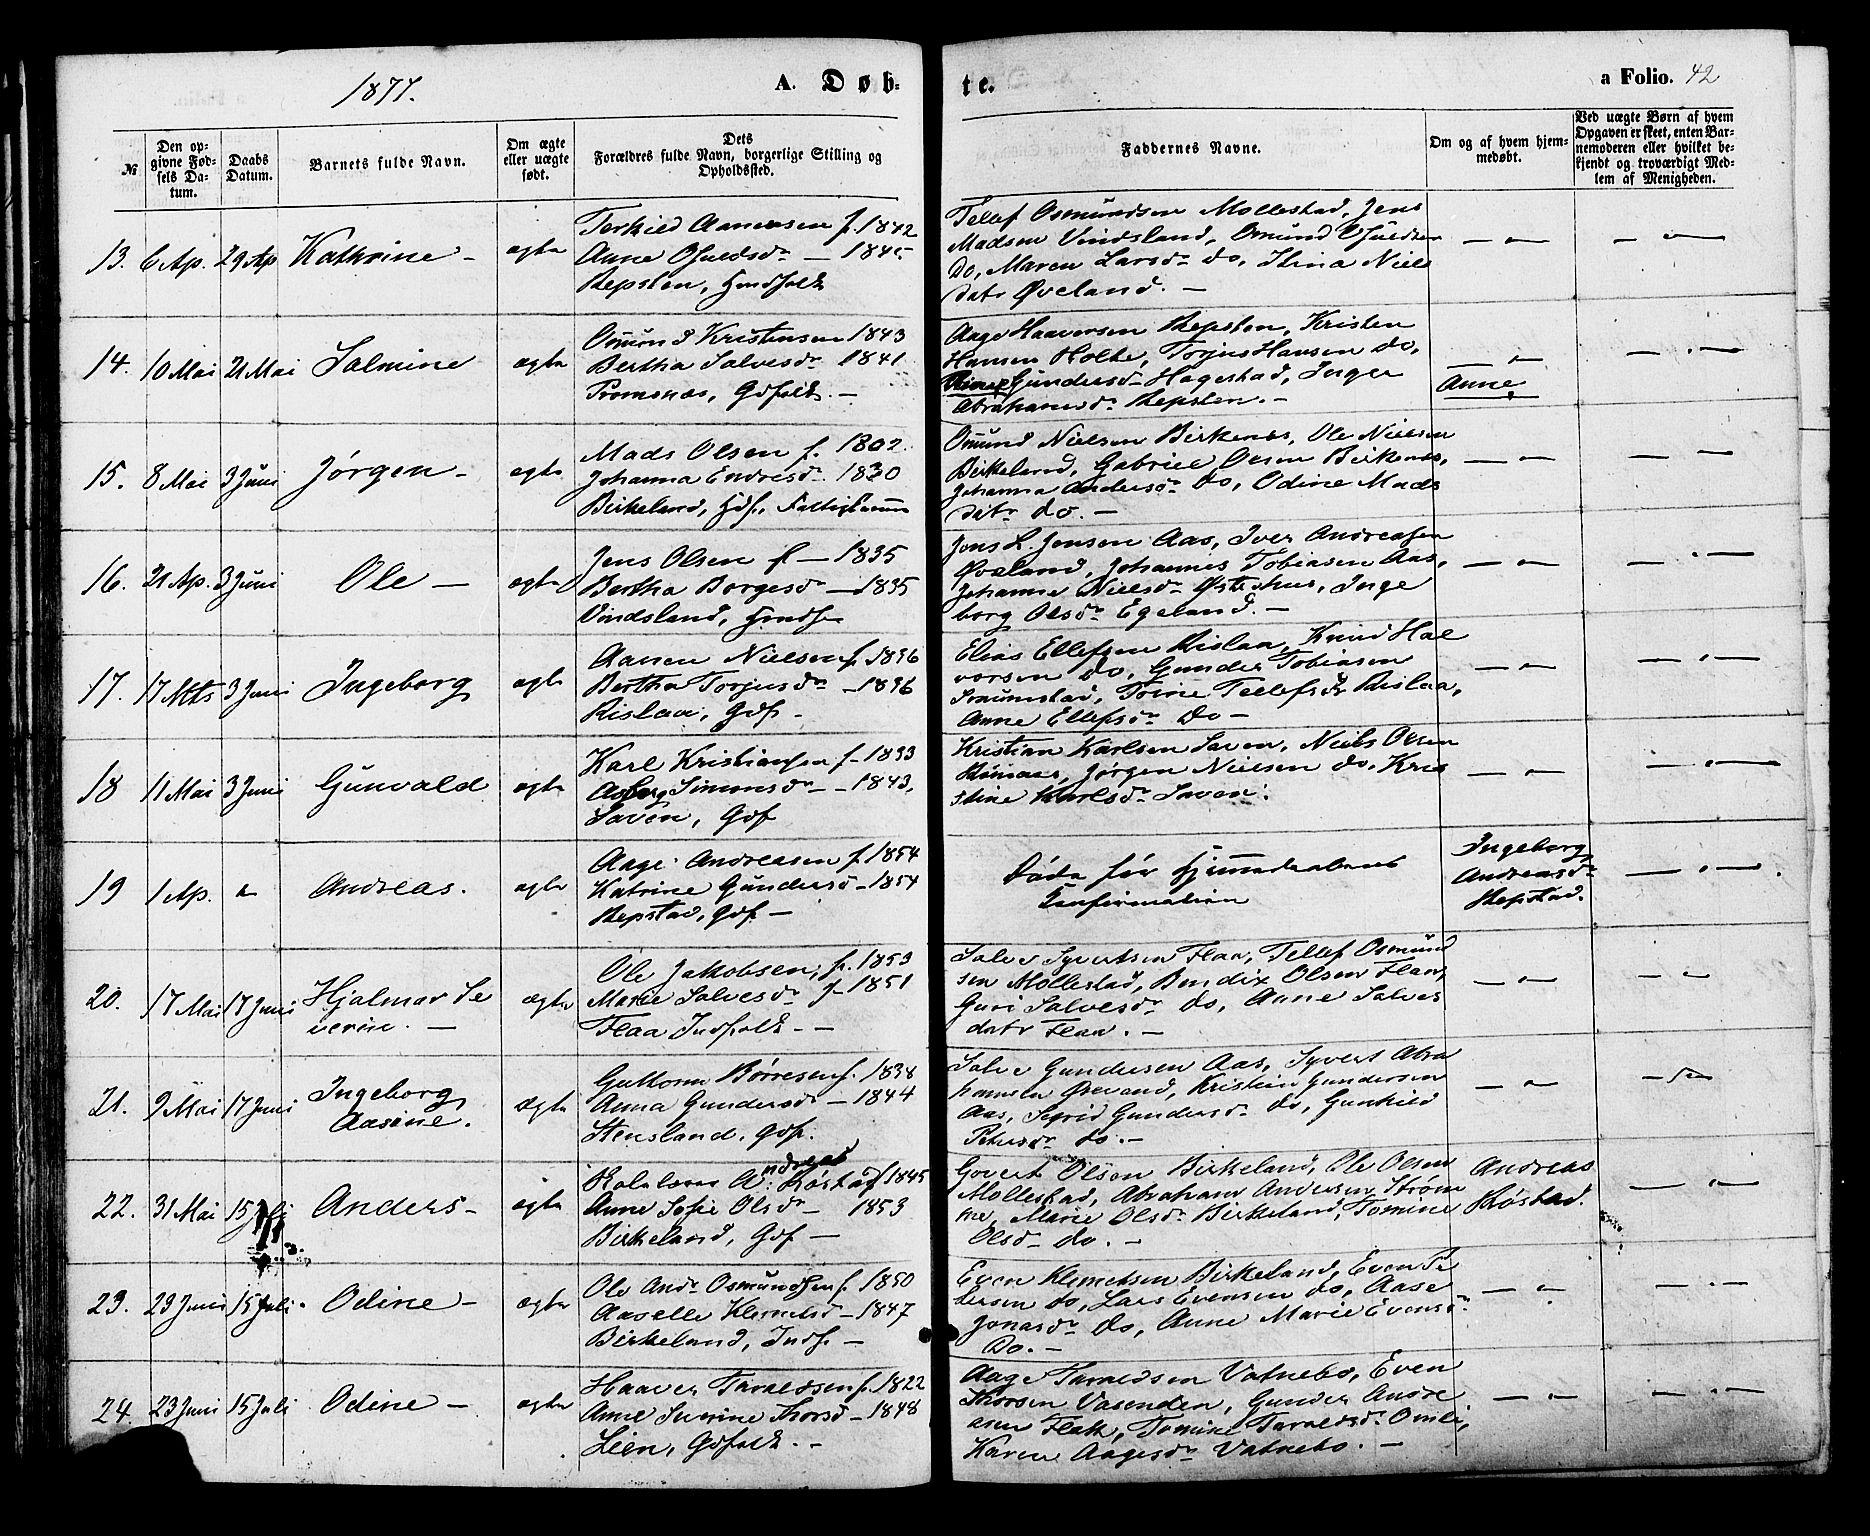 1877.
A. Døb-
te.
a Folio. 42
№
Den op-
givne Fød-
sels Da-
tum.
Daabs
Datum.
Barnets fulde Navn.
Om ægte
eller uægte
født.
Dets
Forældres fulde Navn, borgerlige Stilling og
Opholdssted.
Faddernes Navne.
Om og af hvem hjem-
medøbt.
Ved uægte Børn af hvem
Opgaven er skeet, enten Bar-
nemoderen eller hvilket be-
kjendt og troværdigt Med-
lem af Menigheden.
13. 6 Ap. 29 Ap Kathrine – ægte
Terkild Aanensen f. 1842
Anne Osuldsdr –
Repsten,
Tellef Osmundsen Mollestad, Jens
Madsen Vindsland, Osmund Osuldsen
Do, Maren Larsdr do, Stina Niels
datr Øveland. –
14. 10 Mai 21 Mai Salmine ægte
Omund Kristensen 1843
Bertha Salvesdr 1841
Promsnæs, Gdfolk. –
Aage Haaversen Repsten, Kristen
Hansen Holte, Torjus Hansen do,
Gundersdr Hagestad, Inger
Abrahamsdr Repsten. –
Anne
15. 8 Mai 3 Juni Jørgen – ægte
Mads Olsen f. 1802.
Johanna Endresdr 1830
Birkeland, Gdf,
Omund Nielsen Birkenes, Ole Nielsen
Birkeland, Gabriel Olsen Birkenes,
Johanna Andersdr Do, Odine Mads
datr do. –
16. 21 Ap. 3 Juni Ole – ægte
Jens Olsen f – 1835
Bertha Borgesdr – 1835
Vindsland,
Jens L. Jensen Aas, Iver Andreasen
Øveland, Johannes Tobiasen Aas,
Johanne Nielsdr Østehus, Inge
borg Olsdr Egeland. –
17. 17 Mts 3 Juni Ingeborg ægte
Aanen Nielsen f. 1836
Bertha Torjusdr – 1836
Rislaa, Gdf –
Elias Ellefsen Rislaa, Knud Hal
vorsen do, Gunder Tobiasen
Trine Tellefsdr Rislaa,
Anne Ellefsdr Do –
18 11 Mai 3 Juni Gunvald ægte
Karl Kristiansen f – 1833
Simonsdr – – 1843,
Saven, Gdf
Kristian Karlsen Saven, Niels Olsen
Rimaas, Jørgen Nielsen do, Kris
stine Karlsdr Saven.
19 1 Ap. Andreas. ægte
Aage Andreasen f. 1854
Katrine Gundersd – 1854
Repstad, Gdf –
Døde før Hjemmedaabens
Confirmation
Ingeborg
Andreasdr
Repstad.
20. 17 Mai 17 Juni Hjalmar Se ægte
verin. –
Ole Jakobsen, f. 1853
Marie Salvesdr f 1851
Flaa Indfolk. –
Salve Syvertsen Flaa, Tellef Osmund
sen Mollestad, Bendix Olsen Flaa,
Guri Salvesdr do, Anne Salves
datr Flaa. –
21. 9 Mai 17 Juni Ingeborg ægte
Aasine.
Guttorm Børresen f. 1838
Anna Gundersdr – 1844
Stensland, Gdf.
Salve Gundersen Aas, Syvert Abra
hamsen Øveland, Kristen Gundersen
Aas, Sigrid Gundersdr do, Gunhild
Petersdr do. –
22. 31 Mai 15 Juli Anders – ægte
A. ndreas Røstad f 1845
Anne Sofie Olsdr – 1853
Birkeland, Gdf –
Govert Olsen Birkeland, Ole Olsen
Mollestad, Abraham Andersen Strøm
me, Marie Olsdr Birkeland, Tomine
Olsdr do. –
Andreas
Røstad.
23. 29 Juni 15 Juli. Odine – ægte
Ole Andr Osmundsen f. 1850
Aaselle Klemetsd – 1847
Birkeland, Indf. –
Even Klemetsen Birkeland, Even Pe
tersen do, Lars Evensen do, Aase
Jonasdr do, Anne Marie Evensdr
Do. –
24. 23 Juni 15 Juli Odine – ægte
Haaver Taraldsen f. 1822
Anne Severine Thorsd – 1848
Leen, Gdfolk. –
Aage Taraldsen Vatnebo, Even
Thorsen Vasenden, Gunder Andre
asen Flak, Tomine Taraldsdr Omli,
Karen Aagesdr Vatnebo. –